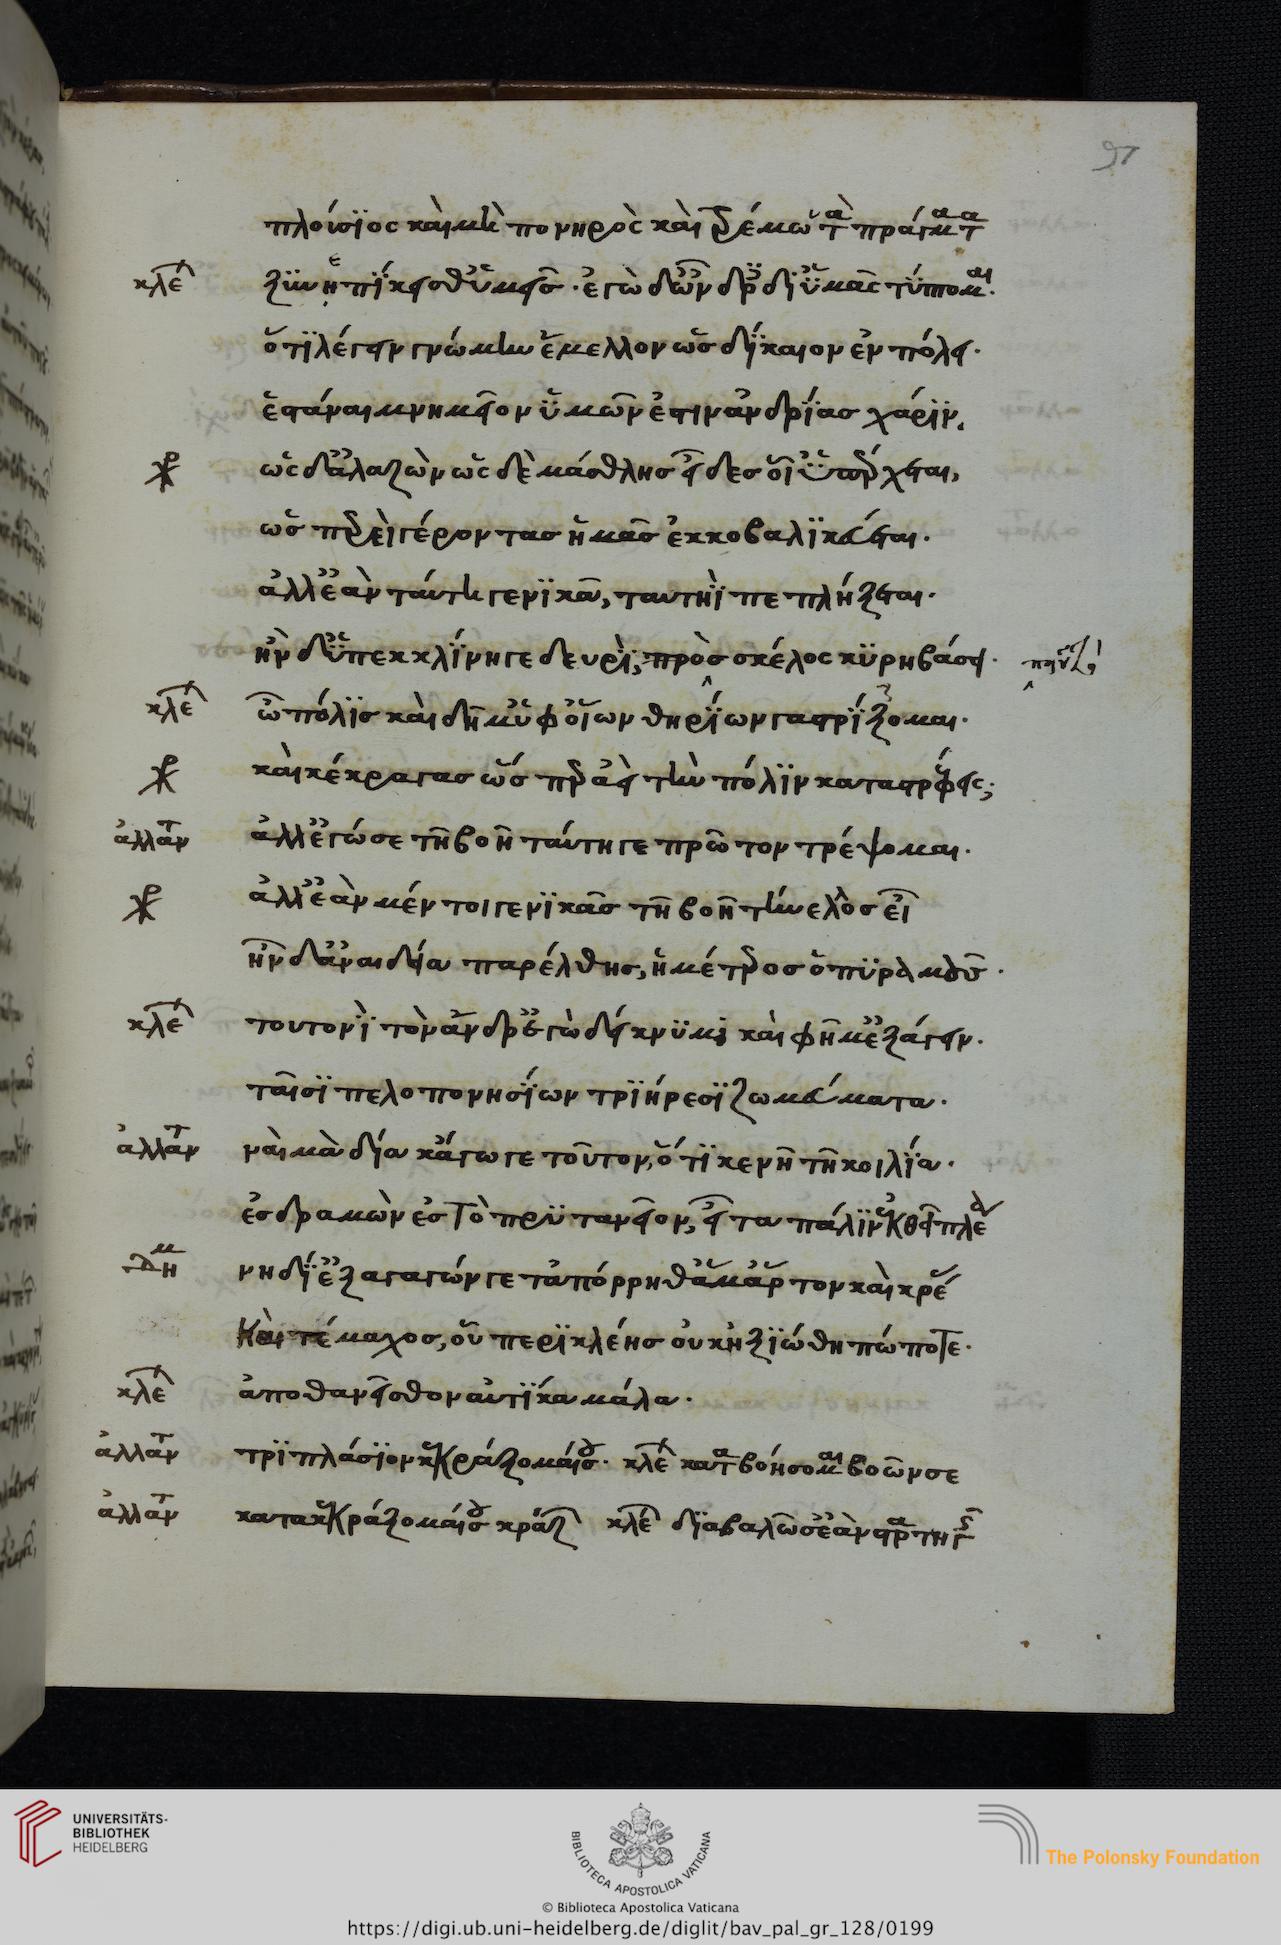 97
πλούσιος καὶ μὴ πονηρὸς καὶ τρέμων τὰ πράγματα
κλέ ξυνεπίκεισθ' ὑμεῖς· ἐγὼ δ' ὦνδρες δι' ὑμᾶς τύπτομαι·
ὅτι λέγειν γνώμην ἔμελλον ὡς δίκαιον ἐν πόλει·
ἑστάναι μνημεῖον ὑμῶν ἐστιν ἀνδρίας χάριν.
χορ ὡς δ' ἀλαζὼν ὡς δὲ μάσθλης εἶδες οἷ' ὑπέρχεται,
ὡσπερεὶ γέροντας ἡμᾶς ἐκκοβαλικεύεται.
ἀλλ' ἐὰν ταύτη γε νικᾶ, ταυτηῒ πεπλήξεται.
ἢν δ' ὑπεκκλίνῃ γε δευρὶ, πρὸς σκέλος κυρηβάσει.
κλέ ὦ πόλις καὶ δῆμ' ὑφ' οἵων θηρίων γαστρίζομαι.
χορ καὶ κέκραγας ὥσπερ ἀεὶ τὴν πόλιν καταστρέφεις;
ἀλλαν ἀλλ' ἐγώ σε τῆ βοῆ ταύτη γε πρῶτον τρέψομαι.
χορ ἀλλ' ἐὰν μέντοι γε νικᾶς τῆ βοῆ τήνελος εἶ
ἢν δ' ἀναιδεία παρέλθης, ἡμέτερος ὁ πυραμοῦς.
κλέ τουτονὶ τὸν ἄνδρ' ἐγὼ δείκνυμι καὶ φῆμ' ἐξάγειν.
ταῖσι πελοπονησίων τριήρεσι ζωμεύματα.
ἀλλαν ναὶ μὰ δία κἄγωγε τοῦτον, ὅτι κενῆ τῆ κοιλία.
ἐσδραμὼν ἐς τὸ πρυτανεῖον, εἶτα πάλιν ἐκθεῖ πλέα
Δημ νὴ δί' ἐξαγαγών γε τἀπόρρηθ' ἅμ' ἄρτον καὶ κρέ
Καὶ τέμαχος, οὗ περικλέης οὐκ ἠξιώθη πώποτε.
κλέ ἀποθανεῖσθον αὐτίκα μάλα.
ἀλλαν τριπλάσιον κεκράξομαί σου. κλέ καταβοήσομαι βοῶν σε
ἀλλαν κατακεκράξομαί σου κράζ κλέ διαβαλῶ σ' ἐὰν στρατηγῆς
UNIVERSITÄTS-
BIBLIOTHEK
HEIDELBERG
BIBLIOTECA APOSTOLICA VATICANA
The Polonsky Foundation
© Biblioteca Apostolica Vaticana
https://digi.ub.uni-heidelberg.de/diglit/bav_pal_gr_128/0199